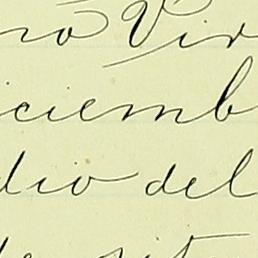 no Vir
iciemb
dio del